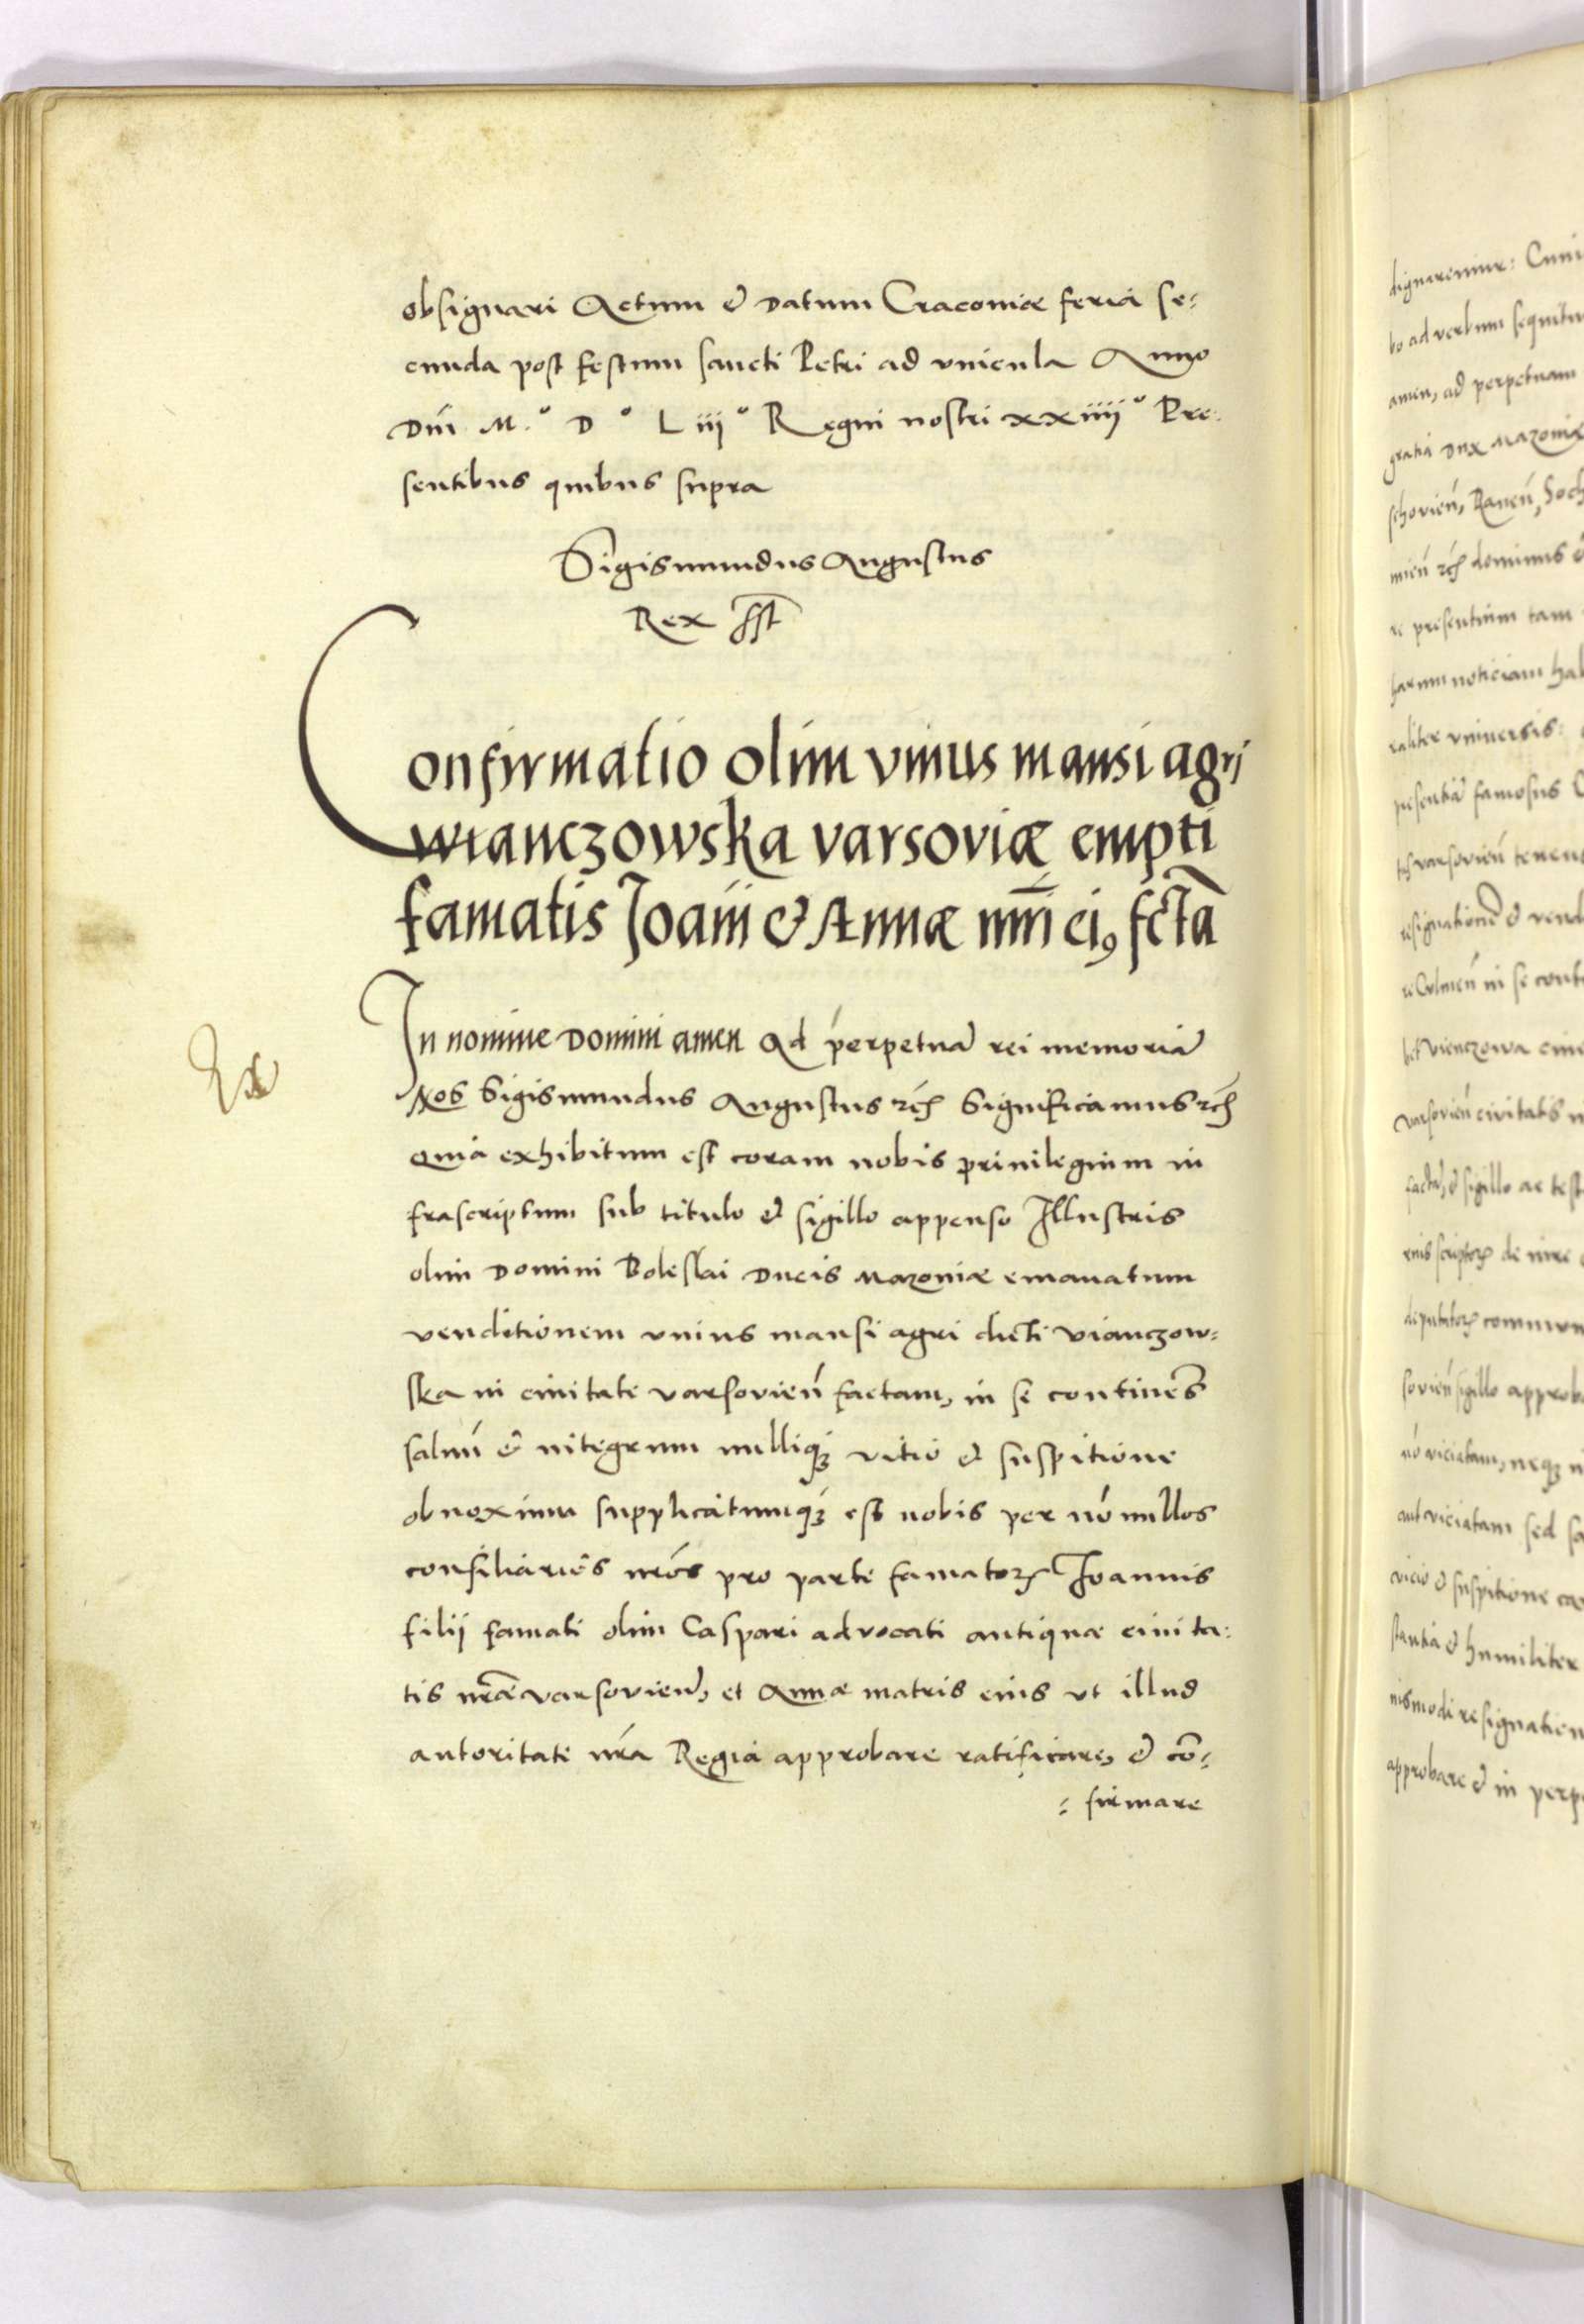 obsignari Actum & Datum Cracoviæ feria se-
cunda post festum sancti Petri ad vincula Anno
Dni M.° D° L iij° Regni nostri xxiiij° Pre-
sentibus quibus supra
Sigismundus Augustus
Rex sst
Confirmatio olim vnius mansi agri
wianczowska varsoviæ empti
famatis Joaīi & Annæ mri ei9 fcta
In nomine Domini amen Ad perpetuā rei memoriā
Nos Sigismundus Augustus rc̄ Significamus rc̄
Quia exhibitum est coram nobis priuilegium in
frascriptum sub titulo & sigillo appenso Illustris
olim Domini Boleslai Ducis Mazoniæ emanatum
venditionem vnius mansi agri dicti vianczow-
ska in ciuitate varsovień factam, in se continēs
saluū & integrum nulliqʒ vitio & suspitione
obnoxium supplicatumqʒ est nobis per nōnullos
consiliariōs nrōs pro parte famatoꝝ Joannis
filij famati olim Caspari advocati antiquæ ciuita-
tis nrāe varsovień, et Annæ matris eius vt illud
autoritate nrā Regia approbare ratificare, & cō-
= firmare
dignaremur: Cuius
bo ad verbum sequitu
amen, ad perpetuam
gratia Dux Mazoniæ
schovień, Raveń, Soch
re presentium tam
harum noticiam hab
raliter vniuersis:
presentiā famosus C
resignationē & vend
varsovień ciuitatis
factā, & sigillo ac test
sovień sigillo approb
nō viciatam, neqʒ
aut viciatam sed sa
vicio & suspitione ca
stantia & humiliter
iusmodi resignation
approbare & in perp